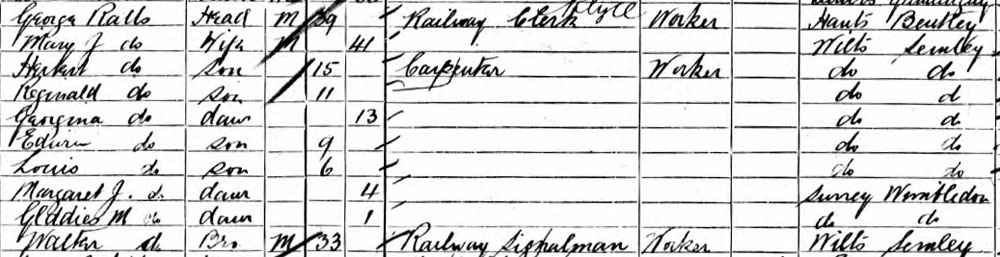 George Ralls Head M 39 Railway Clerk Worker Hants Bentley
Mary J do Wife M 41 Wilts Semley
Herbert do son 15 Carpenter Worker do do
Reginald do son 11 do d
Georgina do daur 13 do do
Edwin do son 9 do do
Louis do son 6 do do
Margaret J. do daur 4 Surrey Wimbledon
Gladdies M do daur 1 do do
Walter do Bro M 33 Railway Signalman Worker Wilts Semley